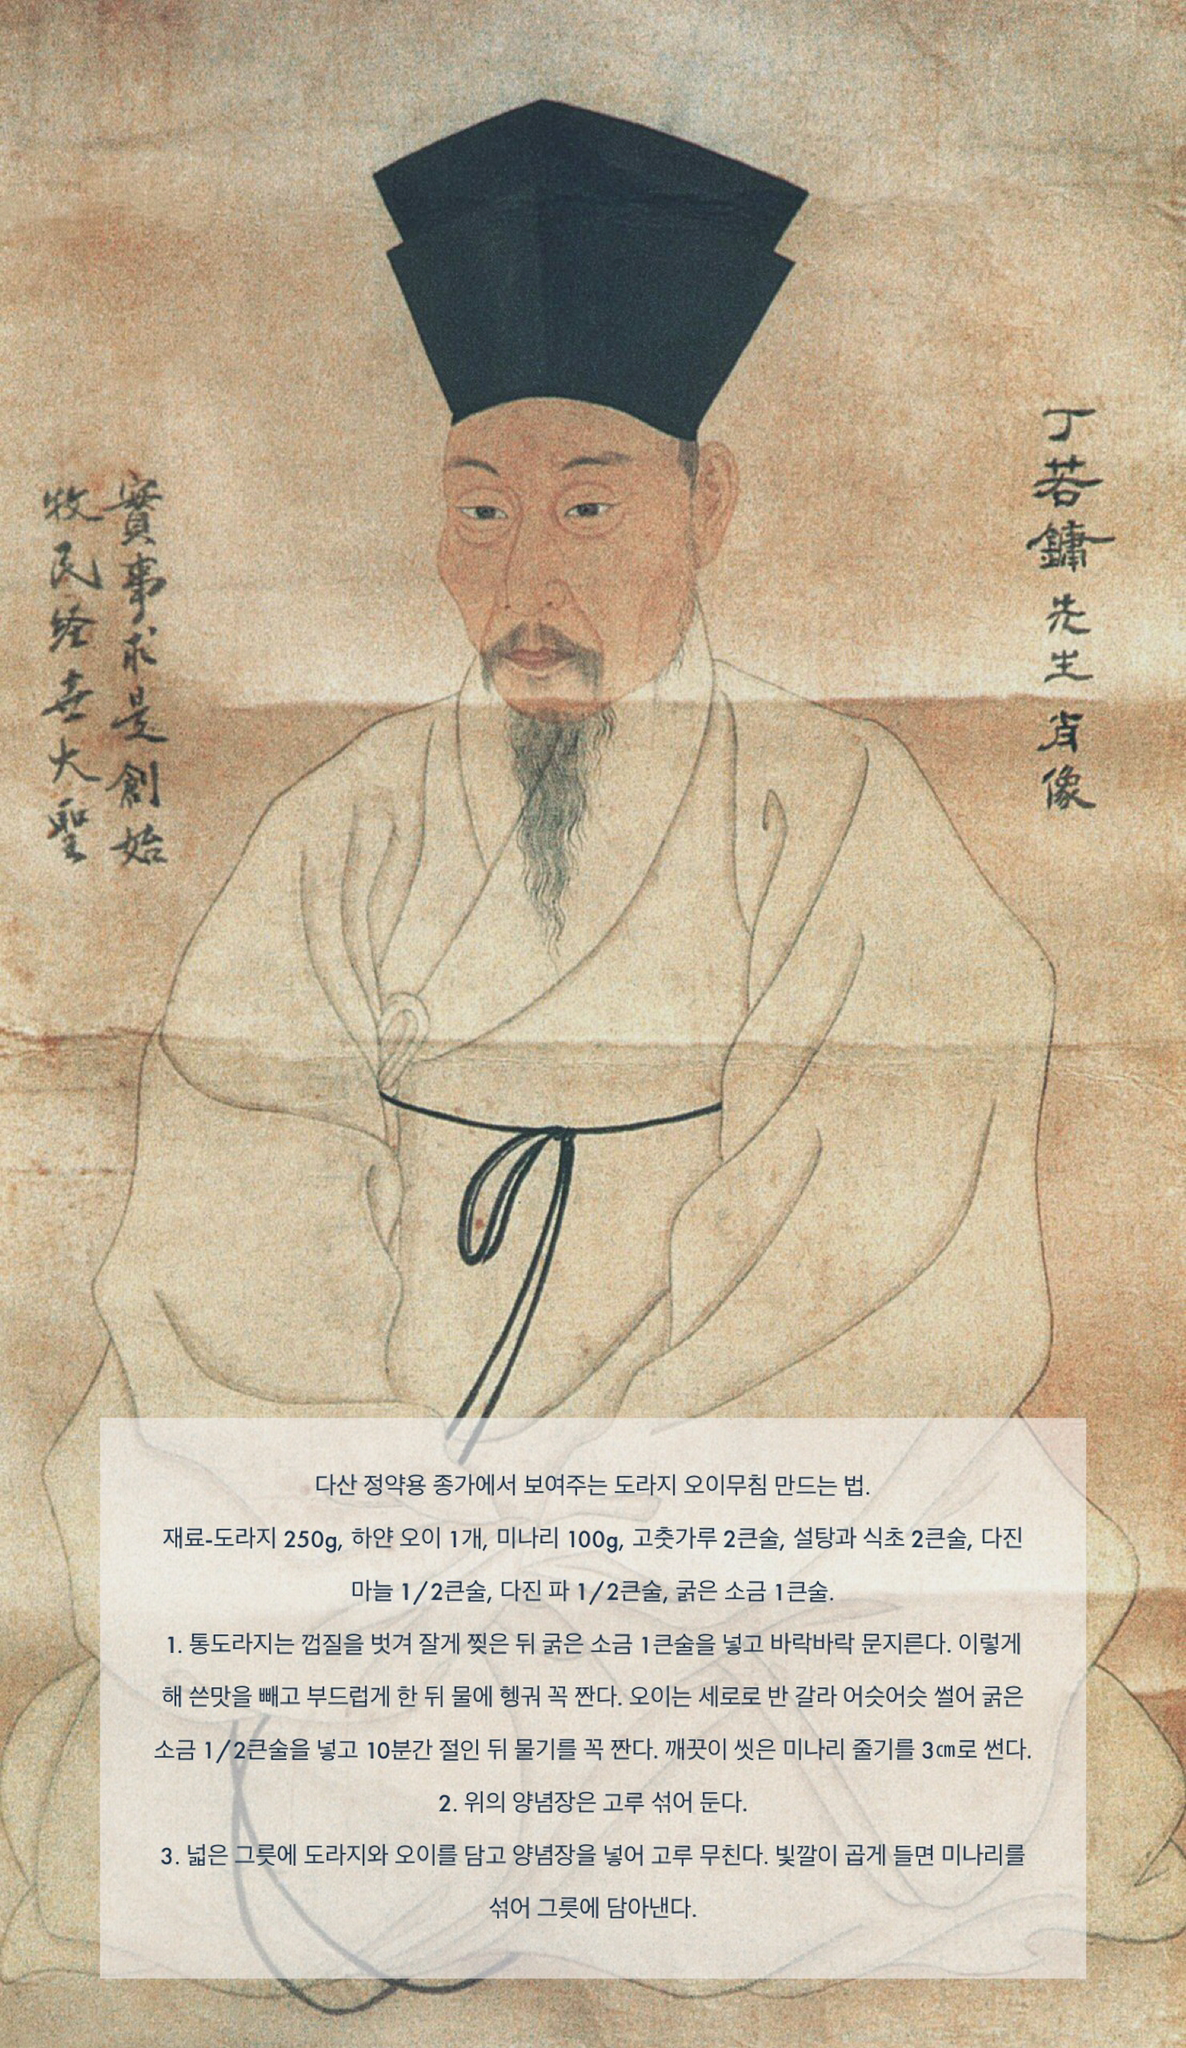 丁若鏞先生肖像
實事求是創始
牧民経世大聖
다산 정약용 종가에서 보여주는 도라지 오이무침 만드는 법.
재료-도라지 250g, 하얀 오이 1개, 미나리 100g, 고춧가루 2큰술, 설탕과 식초 2큰술, 다진
마늘 1/2큰술, 다진 파 1/2큰술, 굵은 소금 1큰술.
1. 통도라지는 껍질을 벗겨 잘게 찢은 뒤 굵은 소금 1큰술을 넣고 바락바락 문지른다. 이렇게
해 쓴맛을 빼고 부드럽게 한 뒤 물에 헹궈 꼭 짠다. 오이는 세로로 반 갈라 어슷어슷 썰어 굵은
소금 1/2큰술을 넣고 10분간 절인 뒤 물기를 꼭 짠다. 깨끗이 씻은 미나리 줄기를 3㎝로 썬다.
2. 위의 양념장은 고루 섞어 둔다.
3. 넓은 그릇에 도라지와 오이를 담고 양념장을 넣어 고루 무친다. 빛깔이 곱게 들면 미나리를
섞어 그릇에 담아낸다.